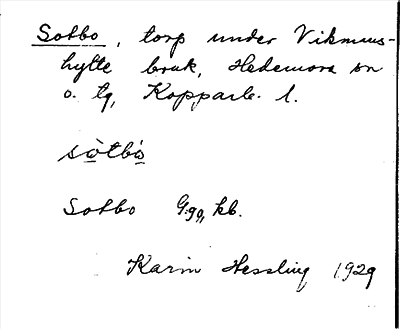 Sotbo, torp under Vikmans-
hytte bruk, Hedemora sn
o. tg, Kopparb. l.
sòtbò
Sotbo Ggg, kb.
Karin Hessling 1929